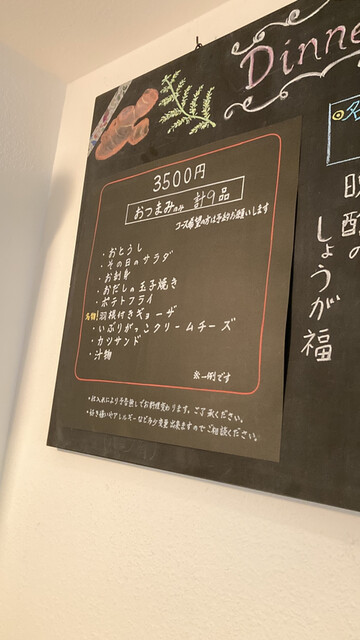 Dinne
3500円
おつまみのみ 計9品
コース希望の方は予約お願いします
・おとうし
・その日のサラダ
・お刺身
・おだしの玉子焼き
・ポテトフライ
名物!羽根付きギョーザ
・いぶりがっこクリームチーズ
・カツサンド
・汁物
※一例です
*仕入れにより予告無しでお料理変わります。ご了承ください。
*好き嫌いやアレルギーなど多少変更出来ますのでご相談ください。
しょうが福